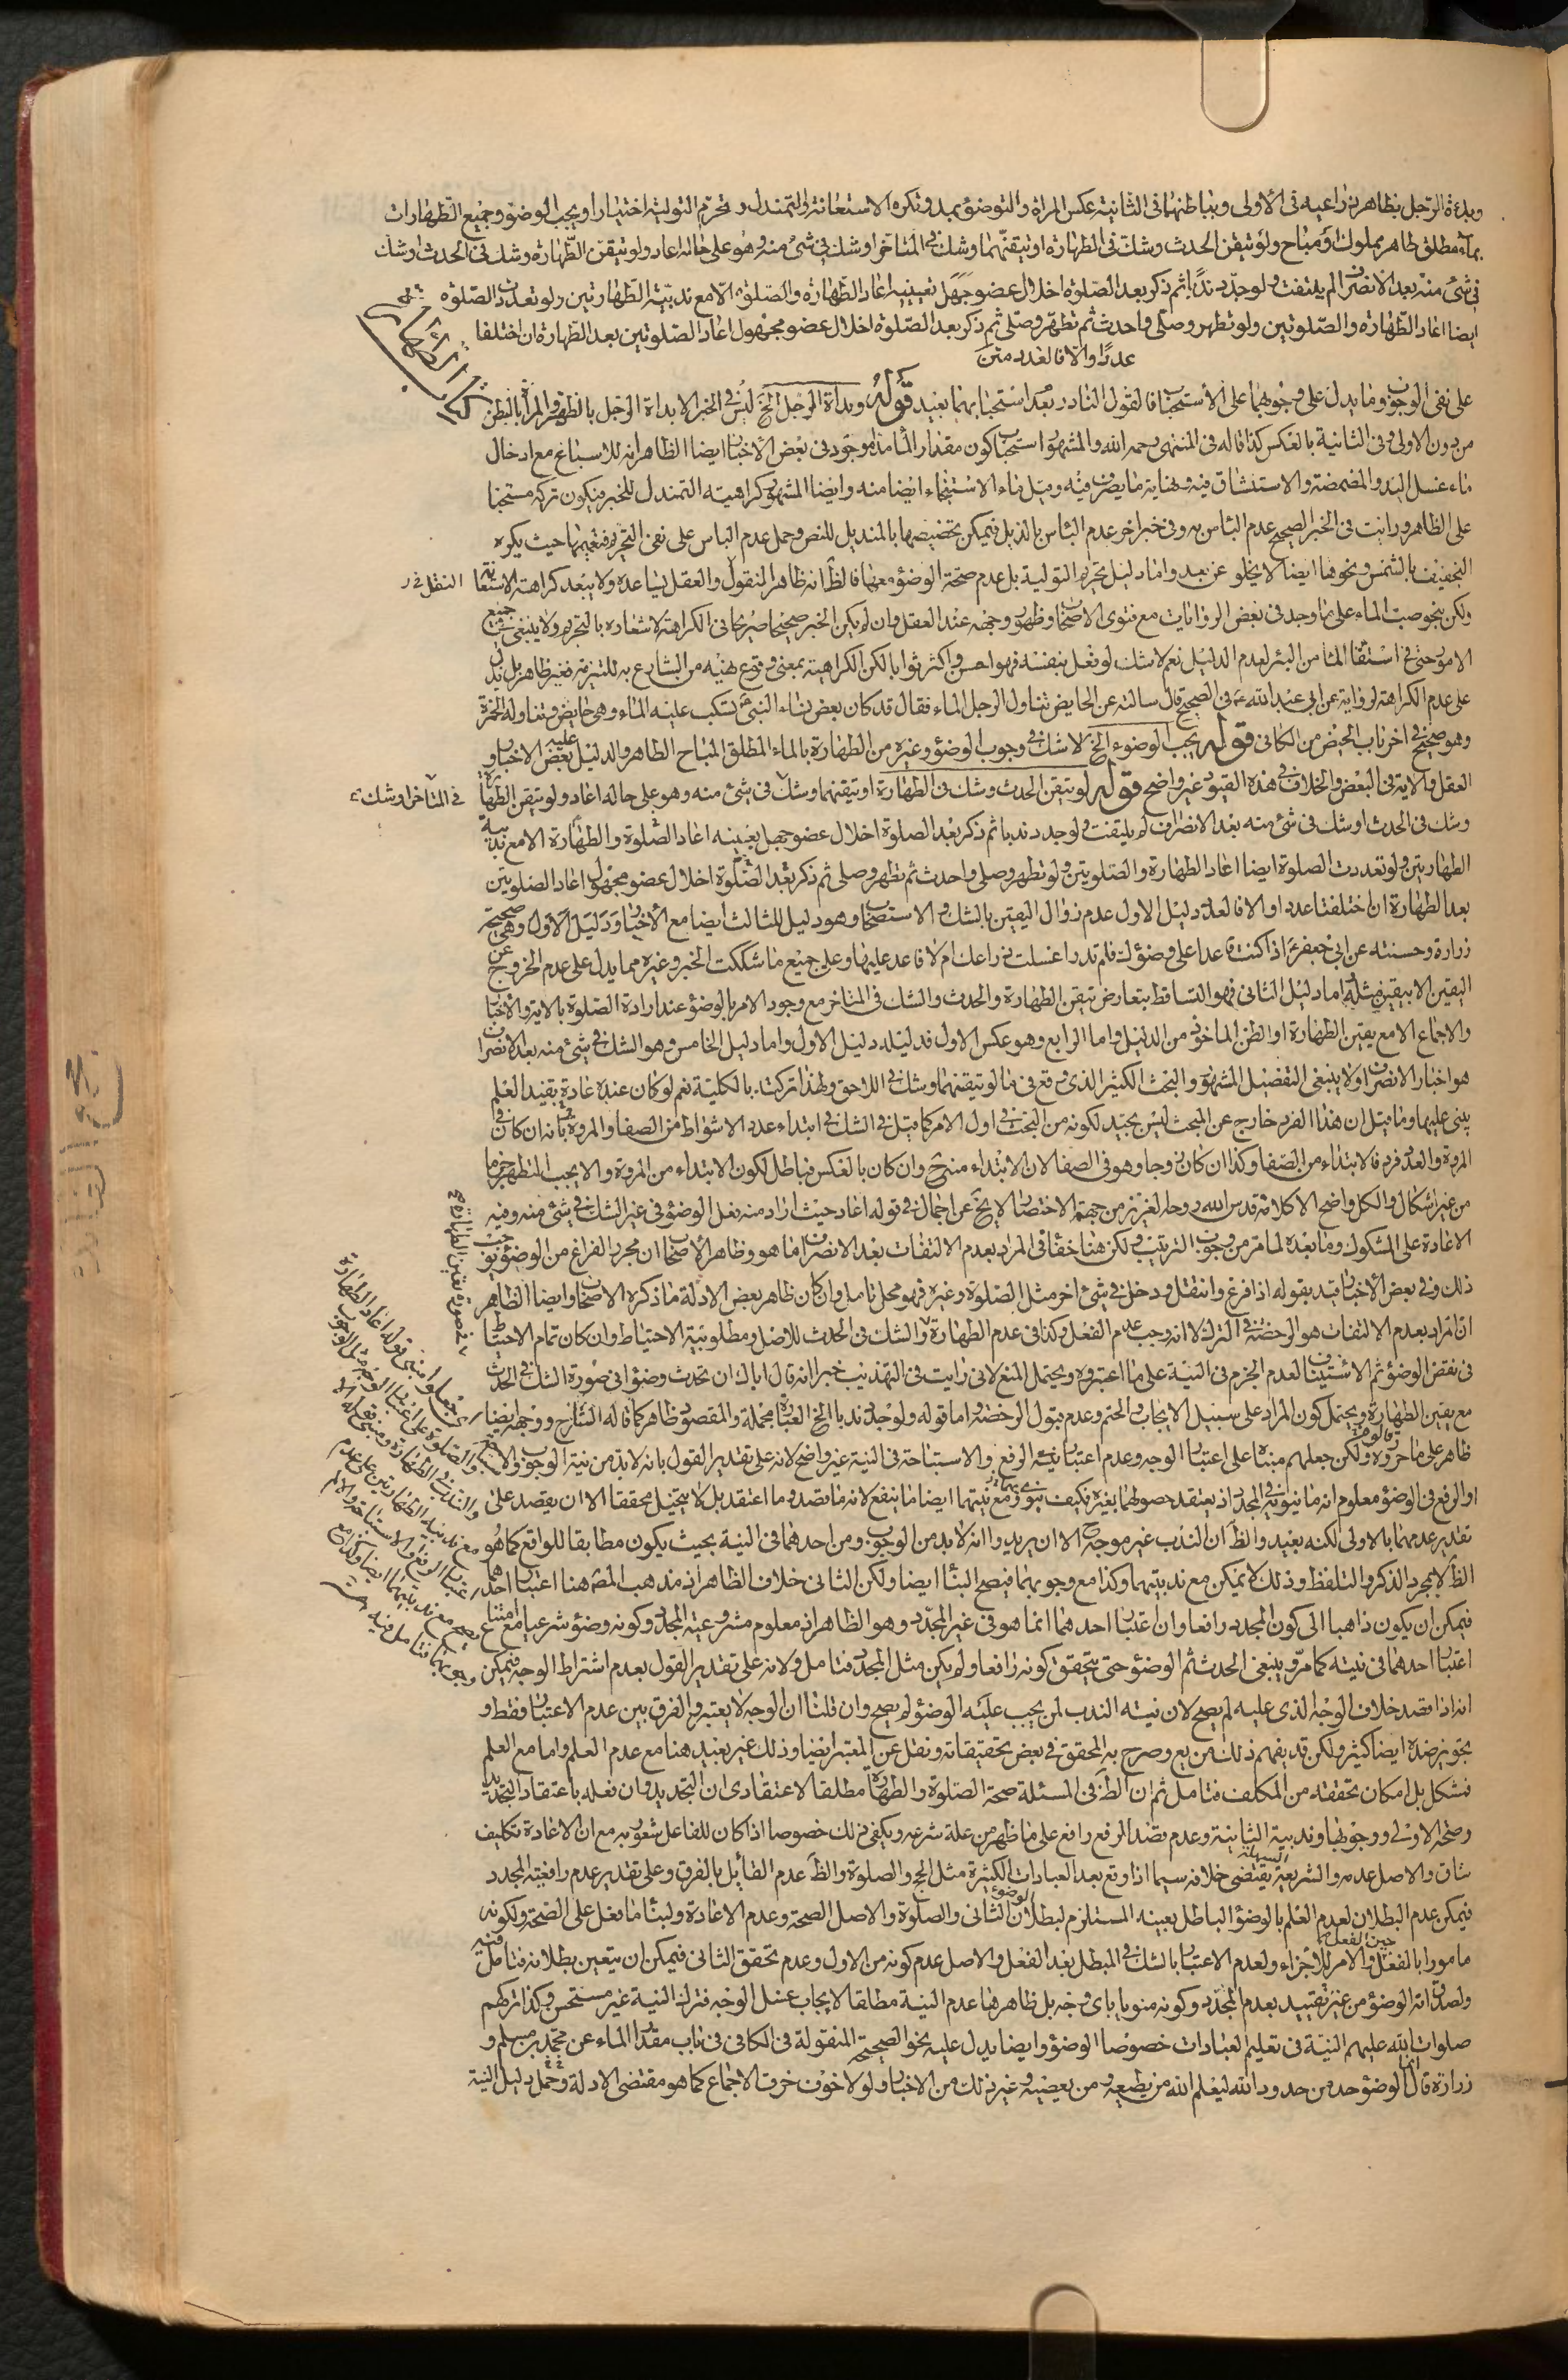 وبدءة الرجل بظاهر ذراعيه فى الاولى وبباطنهما فى الثانية عكس المراة والتوضؤ بمد وتكره الاستعانة والتمندل وتحرم التولية اختيارا ويجب الوضوء وجميع الطهارات
بماء مطلق طاهر مملوك او مباح ولو تيقن الحدث وشك فى الطهارة او تيقنهما وشك فى المتأخر او شك فى شئ منه وهو على حاله اعاد ولو تيقن الطهارة وشك فى الحدث او شك
فى شئ منه بعد الانصراف لم يلتفت ولو جدد ندبا ثم ذكر بعد الصلوة اخلال عضو جهل تعيينه اعاد الطهارة والصلوة الا مع ندبية الطهارتين ولو تعددت الصلوة
ايضا اعاد الطهارة والصلوتين ولو تطهر وصلى واحدث ثم تطهر وصلى ثم ذكر بعد الصلوة اخلال عضو مجهول اعاد الصلوتين بعد الطهارة ان اختلفا
عددا والا فالعدد متن
كتاب الطهارة
على نفى الوجوب وما يدل على وجوبهما على الاستحباب فالقول النادر بعد استحبابهما بعيد قوله وبداة الرجل الخ ليس فى الخبر الا بداة الرجل بالظهر والمرأة بالبطن
من دون الاولى وفى الثانية بالعكس كذا قاله فى المنتهى رحمه الله والمشهور استحباب كون مقدار الماء مدا موجود فى بعض الاخبار ايضا الظاهر انه للاسباغ مع ادخال
ماء غسل اليد والمضمضة والاستنشاق فيه ونهاية ما يصرف فيه وقيل ماء الاستنجاء ايضا منه وايضا المشهور كراهية التمندل للخبر فيكون تركه مستحبا
على الظاهر ورايت فى الخبر الصحيح عدم البأس به وفى خبر اخر عدم البأس بالذيل فيمكن تخصيصها بالمنديل للنص وحمل عدم البأس على نفى التحريم فتعميمها حيث يكره
التجفيف بالشمس ونحوها ايضا لا يخلو عن بعد واما دليل تحريم التولية بل عدم صحة الوضوء معها فالظ انه ظاهر المنقول والعقل يساعده ولا يبعد كراهة الاستعانة
ولكن بنحو صب الماء على ما وجد فى بعض الروايات مع فتوى الاصحاب وظهور وجهه عند العقل وان لم يكن الخبر صحيحا صريحا فى الكراهة لاشعاره بالتحريم ولا ينبغى جميع
الامور حتى فى استقاء الماء من البئر لعدم الدليل نعم لا شك لو فعل بنفسه فهو احسن واكثر ثوابا لكن الكراهية بمعنى وقوع نهيه من الشارع به للتنزيه فغير ظاهر بل يدل
على عدم الكراهة لرواية عن ابى عبد الله ع فى الصحيح قال سالته عن الحايض تناول الرجل الماء فقال قد كان بعض نساء النبى ص تسكب عليه الماء وهى حايض وتناوله الخمرة
وهو صحيح فى اخر باب الحيض من الكافى قوله يجب الوضوء الخ لا شك فى وجوب الوضوء وغيره من الطهارة بالماء المطلق المباح الطاهر والدليل عليه بعض الاخبار و
العقل والاية فى البعض والخلاف فى هذه القيود غير واضح قوله لو تيقن الحدث وشك فى الطهارة او تيقنهما وشك فى شئ منه وهو على حاله اعاد ولو تيقن الطهارة
فى المتاخر او شك
وشك فى الحدث او شك فى شئ منه بعد الانصراف لم يلتفت ولو جدد ندبا ثم ذكر بعد الصلوة اخلال عضو جهل بعينه اعاد الصلوة والطهارة الا مع ندبية
الطهارتين ولو تعددت الصلوة ايضا اعاد الطهارة والصلوتين ولو تطهر وصلى واحدث ثم تطهر وصلى ثم ذكر بعد الصلوة اخلال عضو مجهول اعاد الصلوتين
بعد الطهارة ان اختلفتا عددا والا فالعدد دليل الاول عدم زوال اليقين بالشك والاستصحاب وهو دليل للثالث ايضا مع الاخبار ودليل الاول وهى صحيحة
زرارة وحسنته عن ابى جعفر ع اذا كنت قاعدا على وضوءك فلم تدر اغسلت ذراعك ام لا فاعد عليها وعلى جميع ما شككت الخبر وغيره مما يدل على عدم الخروج عن
اليقين الا بيقين مثله اما دليل الثانى فهو التساقط بتعارض تيقن الطهارة والحدث والشك فى المتاخر مع وجود الامر بالوضوء عند ارادة الصلوة بالاية والاخبار
والاجماع الا مع يقين الطهارة او الظن الماخوذ من الدليل واما الرابع وهو عكس الاول فدليله دليل الاول واما دليل الخامس وهو الشك فى شئ منه بعد الانصراف
هو اخبار الانصراف ولا ينبغى التفصيل المشهور والبحث الكثير الذى وقع فى ما لو تيقنهما وشك فى اللاحق ولهذا تركت بالكلية نعم لو كان عنده عادة يفيد العلم
يبنى عليهما وما قيل ان هذا الفرد خارج عن المبحث ليس بجيد لكونه من البحث فى اول الامر كما قيل فى الشك فى ابتداء عدد الاشواط من الصفا والمروة بانه ان كان فى
المروة والعدد فرد فالابتداء من الصفا وكذا ان كان زوجا وهو فى الصفا لان الابتداء منه ح وان كان بالعكس فباطل لكون الابتداء من المروة والا يجب التطهر جزما
من غير اشكال والكل واضح الا كلامه قدس الله روحه العزيز من جهة الاختصار لا يخ عن اجمال فى قوله اعاد حيث اراد منه فعل الوضوء فى غير الشك فى شئ منه وفيه
الاعادة على المشكوك وما بعده لما مر من وجوب الترتيب ولكن هنا خفاء فى المراد بعدم الالتفات بعد الانصراف ما هو وظاهر الاصحاب ان مجرد الفراغ من الوضوء يوجب
ذلك وفى بعض الاخبار قيد بقوله اذا فرغ وانتقل ودخل فى شئ اخر مثل الصلوة وغيره فهو محل تامل وان كان ظاهر بعض الادلة ما ذكره الاصحاب وايضا الظاهر
ان المراد بعدم الالتفات هو الرخصة فى الترك لا انه وجب عدم الفعل وكذا فى عدم الطهارة والشك فى الحدث للاصل ومطلوبية الاحتياط وان كان تمام الاحتياط
فى نقض الوضوء ثم الاستيناف لعدم الجزم فى النية على ما اعتبروه ويحتمل المنع لانى رايت فى التهذيب خبرا انه قال اياك ان تحدث وضوءا فى صورة الشك فى الحدث
مع يقين الطهارة ويحتمل كون المراد على سبيل الايجاب والحتم وعدم قبول الرخصة واما قوله ولو جدد ندبا الخ العبارة مجملة والمقصود ظاهر كما قاله الشارح ووجهه ايضا
ظاهر على ما حرروه ولكن جعلهم مبناه على اعتبار الوجه وعدم اعتبار نية الرفع والاستباحة فى النية غير واضح لانه على تقدير القول بانه لا بد من نية الوجوب والاستباحة
او الرفع فى الوضوء معلوم انه ما ينويه فى المجدد اذ يعتقد حصولهما بغيره فكيف ينوى ومع نيتهما ايضا ما ينفع لانه ما قصد وما اعتقد بل لا يتخيل محققا الا ان يقصد على
تقدير عدمهما بالاولى لكنه بعيد والظ ان الندب غير موجه ح الا ان يريد وا انه لا بد من الوجوب ومن احدهما فى النية بحيث يكون مطابقا للواقع كما هو
الظ لا بمجرد الذكر والتلفظ وذلك لا يمكن مع ندبيتهما وكذا مع وجوبهما فيصح البناء ايضا ولكن الثانى خلاف الظاهر اذ مذهب المص هنا اعتبار احدهما
فيمكن ان يكون ذاهبا الى كون المجدد رافعا وان اعتبار احدهما انما هو فى غير المجدد وهو الظاهر اذ معلوم مشروعية المجدد وكونه وضوء شرعيا مع امتناع
اعتبار احدهما فى نيته كما مر وينبغى الحدث ثم الوضوء حتى يتحقق كونه رافعا ولم يكن مثل المجدد فتامل ولانه على تقدير القول بعدم اشتراط الوجه فيمكن
انه اذا قصد خلاف الوجه الذى عليه لم يصح لان نية الندب لمن يجب عليه الوضوء لم يصح وان قلنا ان الوجه لا يعتبر والفرق بين عدم الاعتبار فقط و
تجويز ضده ايضا كثير ولكن قد يفهم ذلك من يع وصرح به المحقق فى بعض تحقيقاته ونقل عن المعتبر ايضا وذلك غير بعيد هنا مع عدم العلم واما مع العلم
فمشكل بل امكان تحققه من المكلف فتامل ثم ان الظ فى المسئلة صحة الصلوة والطهارة مطلقا لاعتقادى ان التجديد وان فعله باعتقاد التجديد
وصحة الاولى ووجوبها وندبية الثانية وعدم قصد الرفع رافع على ما ظهر من علة شرعه ويكفى ذلك خصوصا اذا كان للفاعل شعور به مع ان الاعادة تكليف
شاق والاصل عدمه والشريعة السهلة يقتضى خلافه سيما اذا وقع بعد العبادات الكثيرة مثل الحج والصلوة والظ عدم القائل بالفرق وعلى تقدير عدم رافعية المجدد
فيمكن عدم البطلان لعدم العلم بالوضوء الباطل بعينه المستلزم لبطلان الوضوء الثانى والصلوة والاصل الصحة وعدم الاعادة ولبناء ما فعل على الصحة ولكونه
مامورا بالفعل حين الفعل والامر للاجزاء ولعدم الاعتبار بالشك فى المبطل بعد الفعل والاصل عدم كونه من الاول وعدم تحقق الثانى فيمكن ان يتعين بطلانه فتامل فيه
ولصدق انه الوضوء من غير تقييد بعدم المجدد وكونه منويا باى وجه بل ظاهرها عدم النية مطلقا لايجاب غسل الوجه فترك النية غير مستحسن وكذا تركهم
صلوات الله عليهم النية فى تعليم العبادات خصوصا الوضوء وايضا يدل عليه نحو الصحيحة المنقولة فى الكافى فى باب مقدار الماء عن محمد بن مسلم و
زرارة قال انما الوضوء حد من حدود الله ليعلم الله من يطيعه ومن يعصيه وغير ذلك من الاخبار ولولا خوف خرق الاجماع كما هو مقتضى الادلة وحمل دليل النية